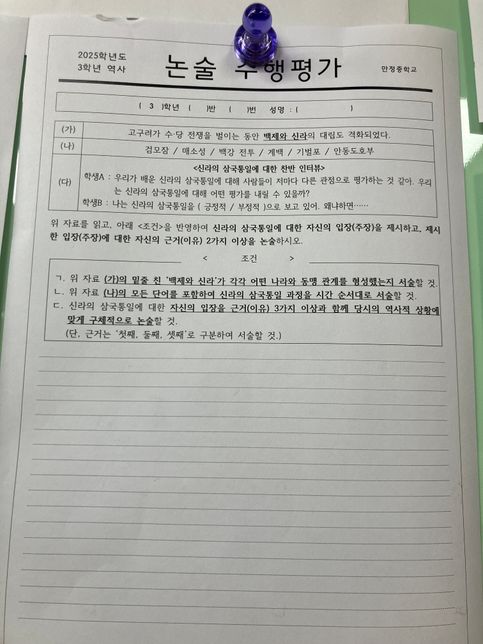 2025학년도
3학년 역사
논술 수행평가
만정중학교
( 3 )학년 ( )반 ( )번 성명 : ( )
(가) 고구려가 수·당 전쟁을 벌이는 동안 백제와 신라의 대립도 격화되었다.
(나) 검모잠 / 매소성 / 백강 전투 / 계백 / 기벌포 / 안동도호부
<신라의 삼국통일에 대한 찬반 인터뷰>
(다) 학생A : 우리가 배운 신라의 삼국통일에 대해 사람들이 저마다 다른 관점으로 평가하는 것 같아. 우리
는 신라의 삼국통일에 대해 어떤 평가를 내릴 수 있을까?
학생B : 나는 신라의 삼국통일을 ( 긍정적 / 부정적 )으로 보고 있어. 왜냐하면……
위 자료를 읽고, 아래 <조건>을 반영하여 신라의 삼국통일에 대한 자신의 입장(주장)을 제시하고, 제시
한 입장(주장)에 대한 자신의 근거(이유) 2가지 이상을 논술하시오.
< 조건 >
ㄱ. 위 자료 (가)의 밑줄 친 '백제와 신라'가 각각 어떤 나라와 동맹 관계를 형성했는지 서술할 것.
ㄴ. 위 자료 (나)의 모든 단어를 포함하여 신라의 삼국통일 과정을 시간 순서대로 서술할 것.
ㄷ. 신라의 삼국통일에 대한 자신의 입장을 근거(이유) 3가지 이상과 함께 당시의 역사적 상황에
맞게 구체적으로 논술할 것.
(단, 근거는 '첫째, 둘째, 셋째'로 구분하여 서술할 것.)